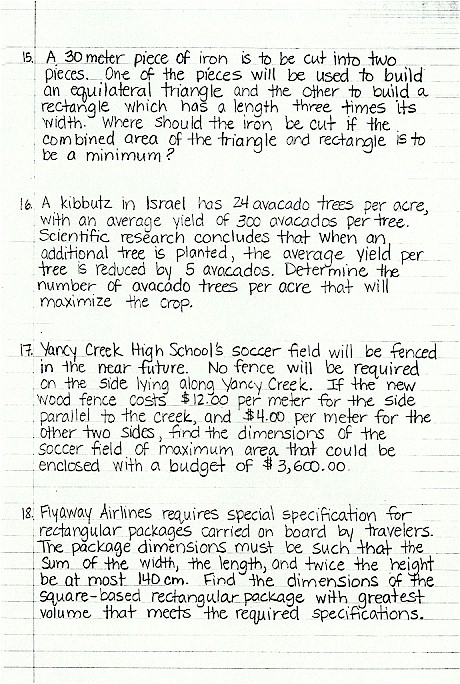 15. A 30 meter piece of iron is to be cut into two
pieces. One of the pieces will be used to build
an equilateral triangle and the other to build a
rectangle which has a length three times its
width. Where should the iron be cut if the
combined area of the triangle and rectangle is to
be a minimum?
16. A kibbutz in Israel has 24 avacado trees per acre,
with an average yield of 300 avacados per tree.
Scientific research concludes that when an
additional tree is planted, the average yield per
tree is reduced by 5 avocados. Determine the
number of avacado trees per acre that will
maximize the crop.
17. Yancy Creek High School's soccer field will be fenced
in the near future. No fence will be required
on the side lying along Yancy Creek. If the new
wood fence costs $12.00 per meter for the side
parallel to the creek, and $4.00 per meter for the
other two sides, find the dimensions of the
soccer field of maximum area that could be
enclosed with a budget of $3,600.00.
18. Flyaway Airlines requires special specification for
rectangular packages carried on board by travelers.
The package dimensions must be such that the
sum of the width, the length, and twice the height
be at most 140 cm. Find the dimensions of the
square-based rectangular package with greatest
volume that meets the required specifications.